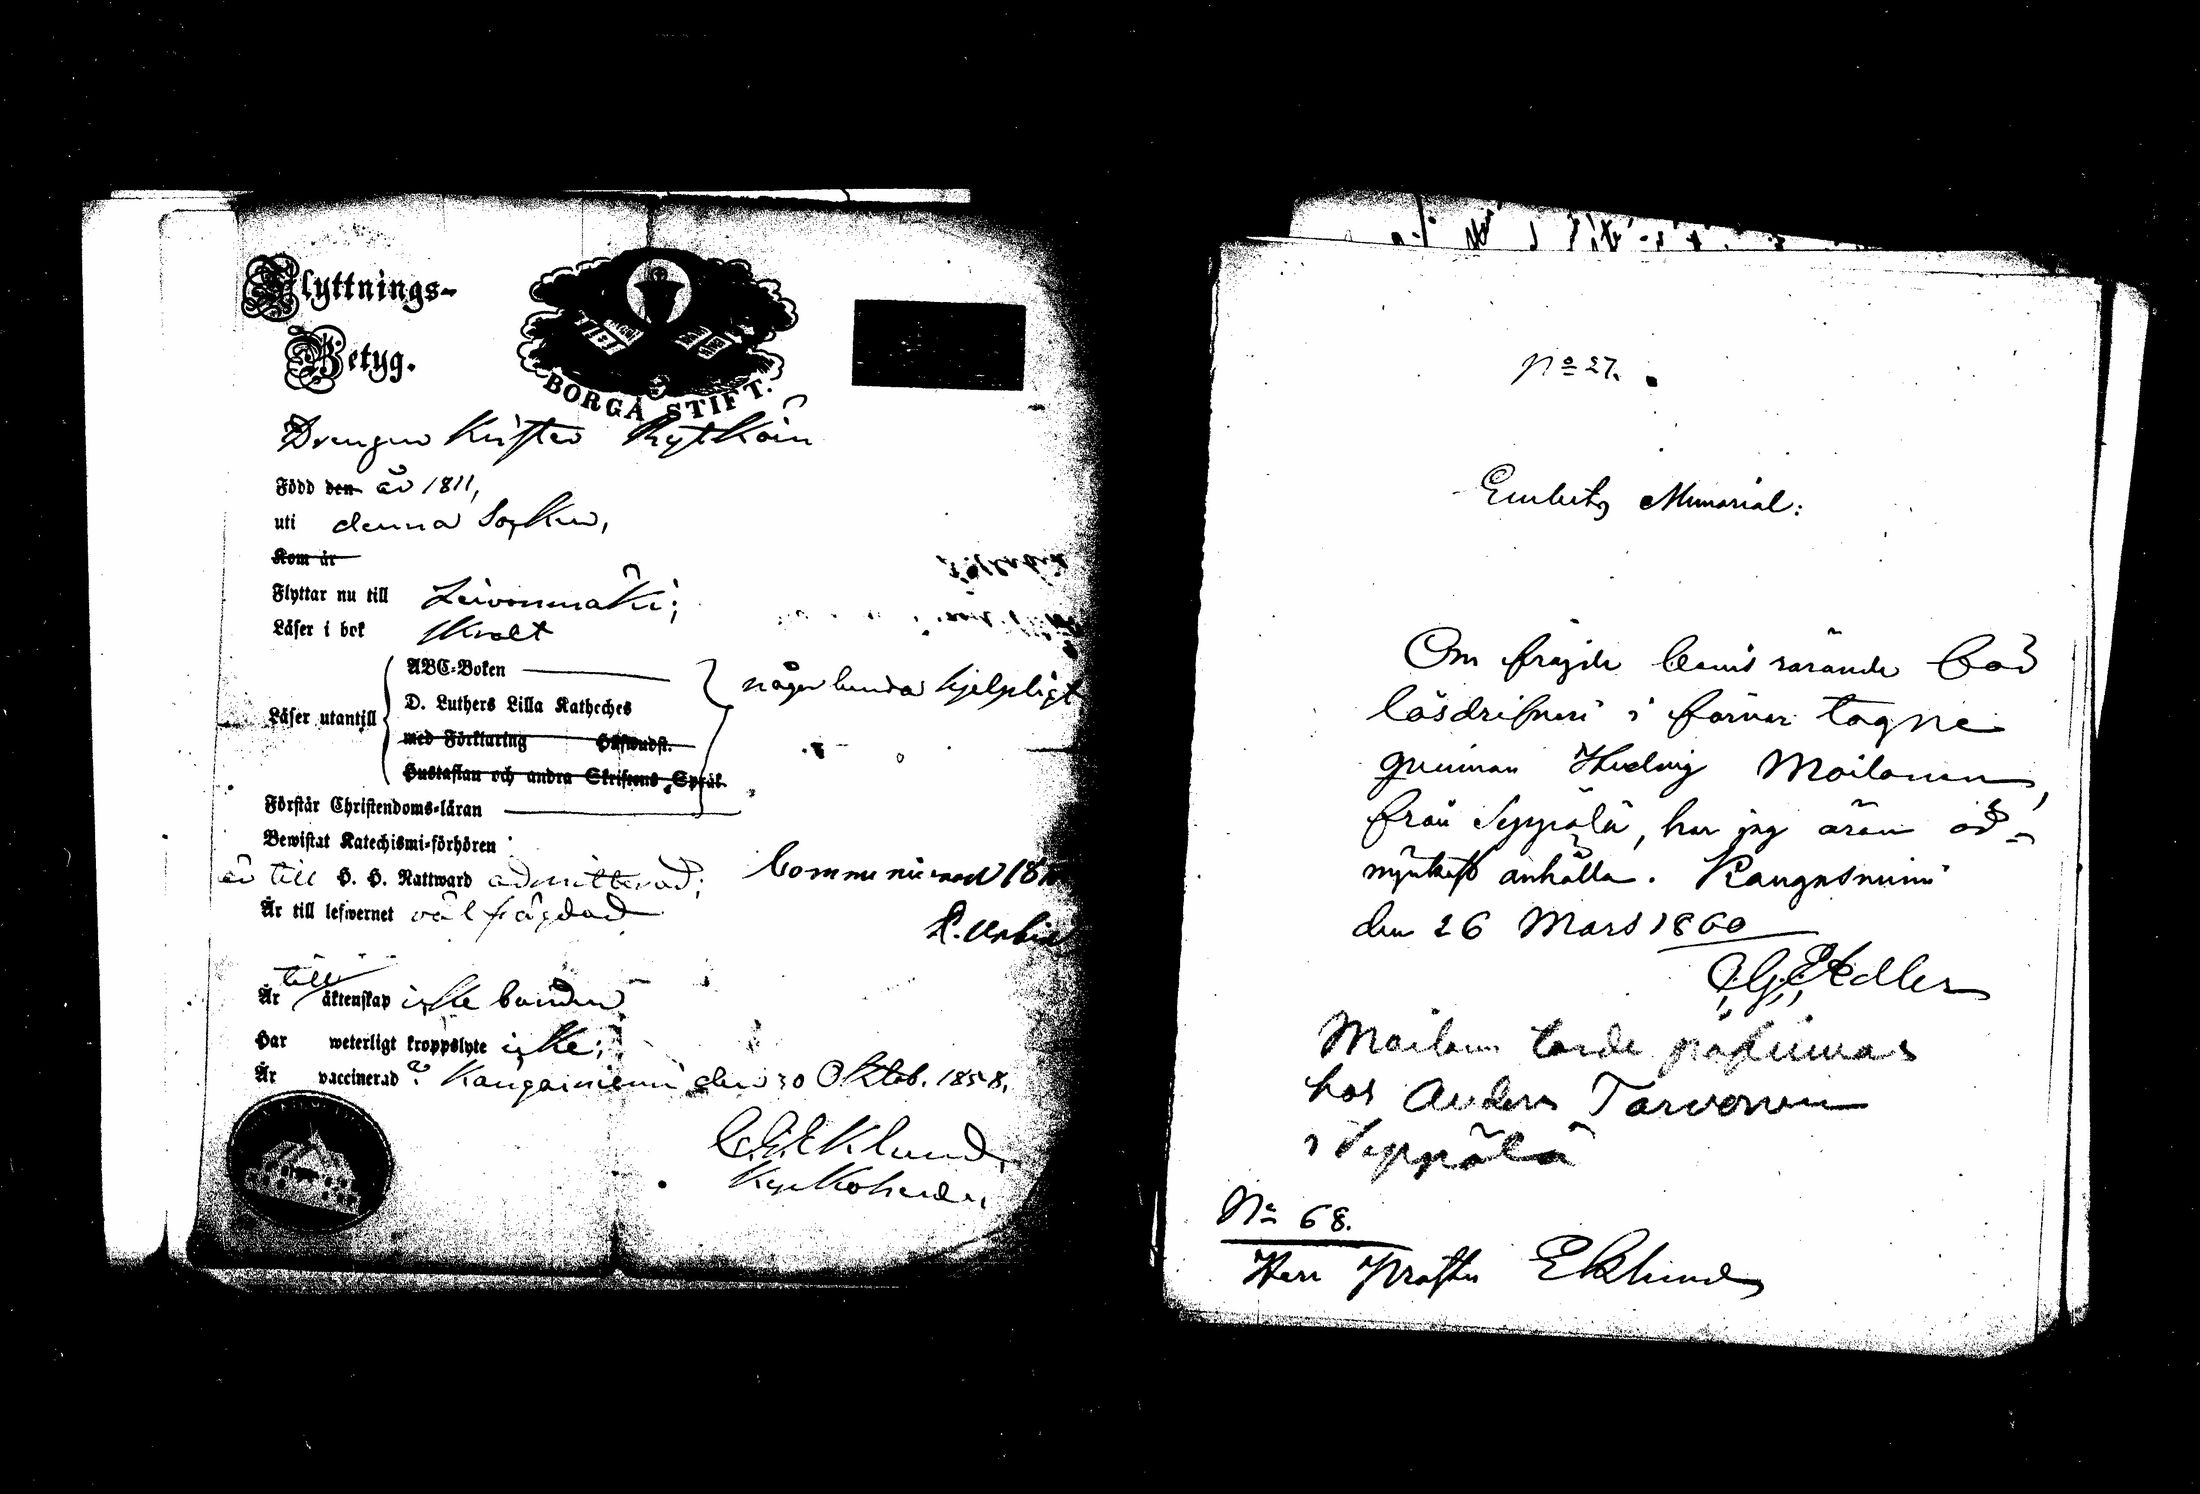 Flyttnings-
Betyg.
BORGÅ STIFT.
Drengen Krister Rytköin
Född den år 1811,
uti denna Sokn,
Kom år
Flyttar nu till Leivonmäki;
Läser i bok svalt
ABC-Boken
Läser utantill
någorlunda hjelpligt
D. Luthers Lilla Katheches
med Förklaring Huswudst.
Hustaflan och andra Skriftens Språk.
Förstår Christendoms-läran
Bewistat Katechismi-förhören
är till H. H. Nattward admitterad; Communicerad 18
Är till lefwernet väl frägdad
Är till äktenskap icke bunden
Har weterligt kroppslyte icke;
Är vaccinerad? Kangasniemi den 30 Oktob. 1858.
C. G. Eklund,
Kyrkoherde.
No 27.
Embets Memorial:
Om frejde bevis rörande
lösdrifveri i förvar tagne
qvinnan Hedvig Moilanen,
från Seppälä, har jag äran öd-
mjukast anhålla. Kangasniemi
den 26 Mars 1860
Adler
Moilanen torde påfinnas
hos Anders Tarvonen
i Seppälä
No 68.
Herr Prosten Eklund